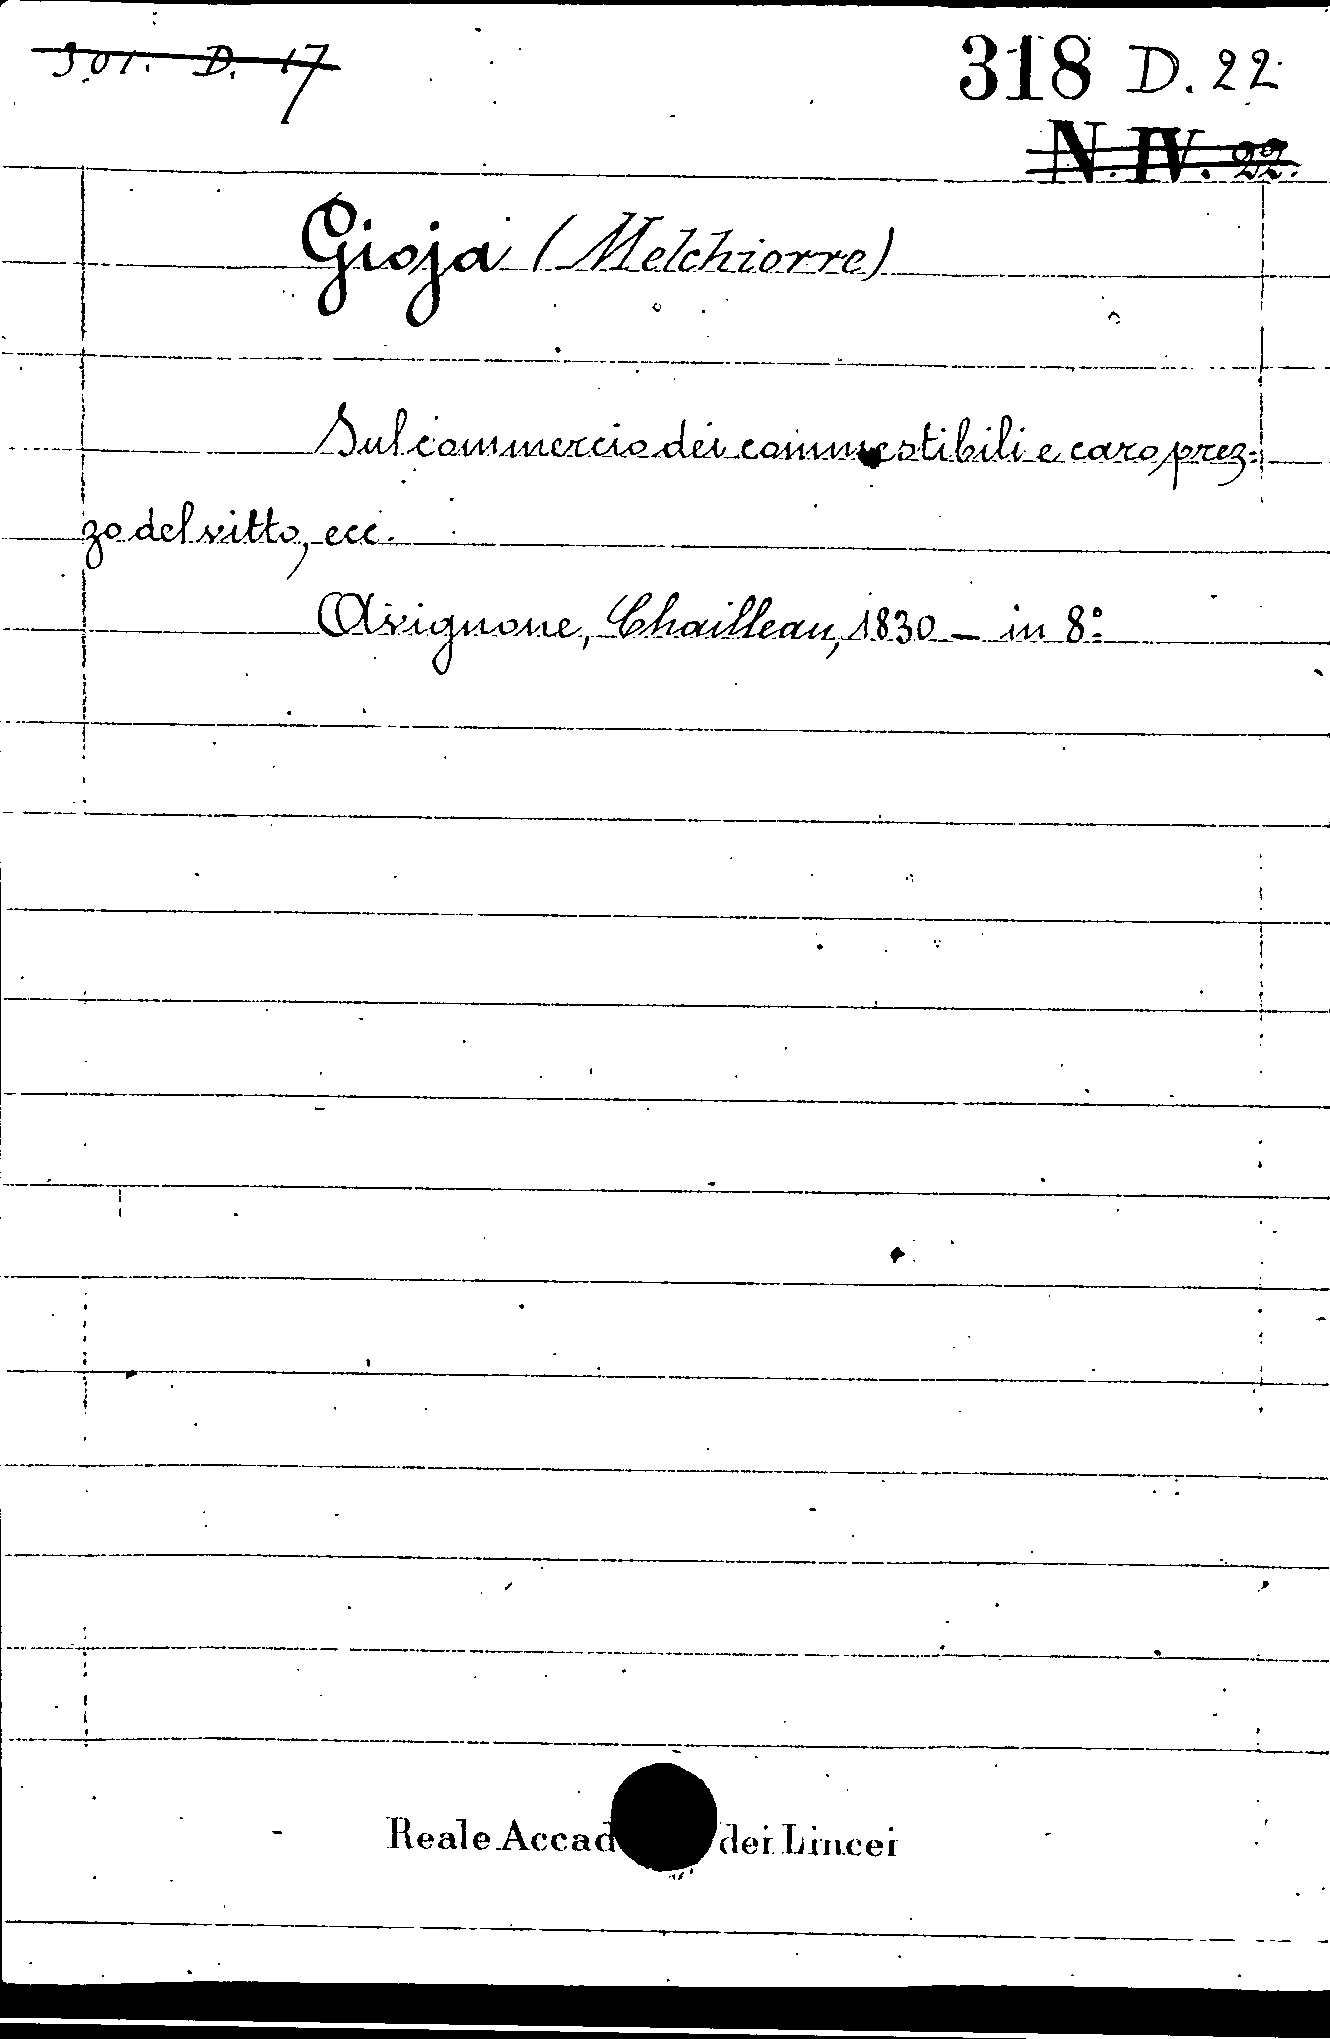 301. D. 17
318 D. 22
N. IV. 22.
Gioja (Melchiorre)
Sul commercio dei commestibili e caro prez=
zo del vitto, ecc.
Avignone, Chailleau, 1830 – in 8°
Reale Accad dei Lincei